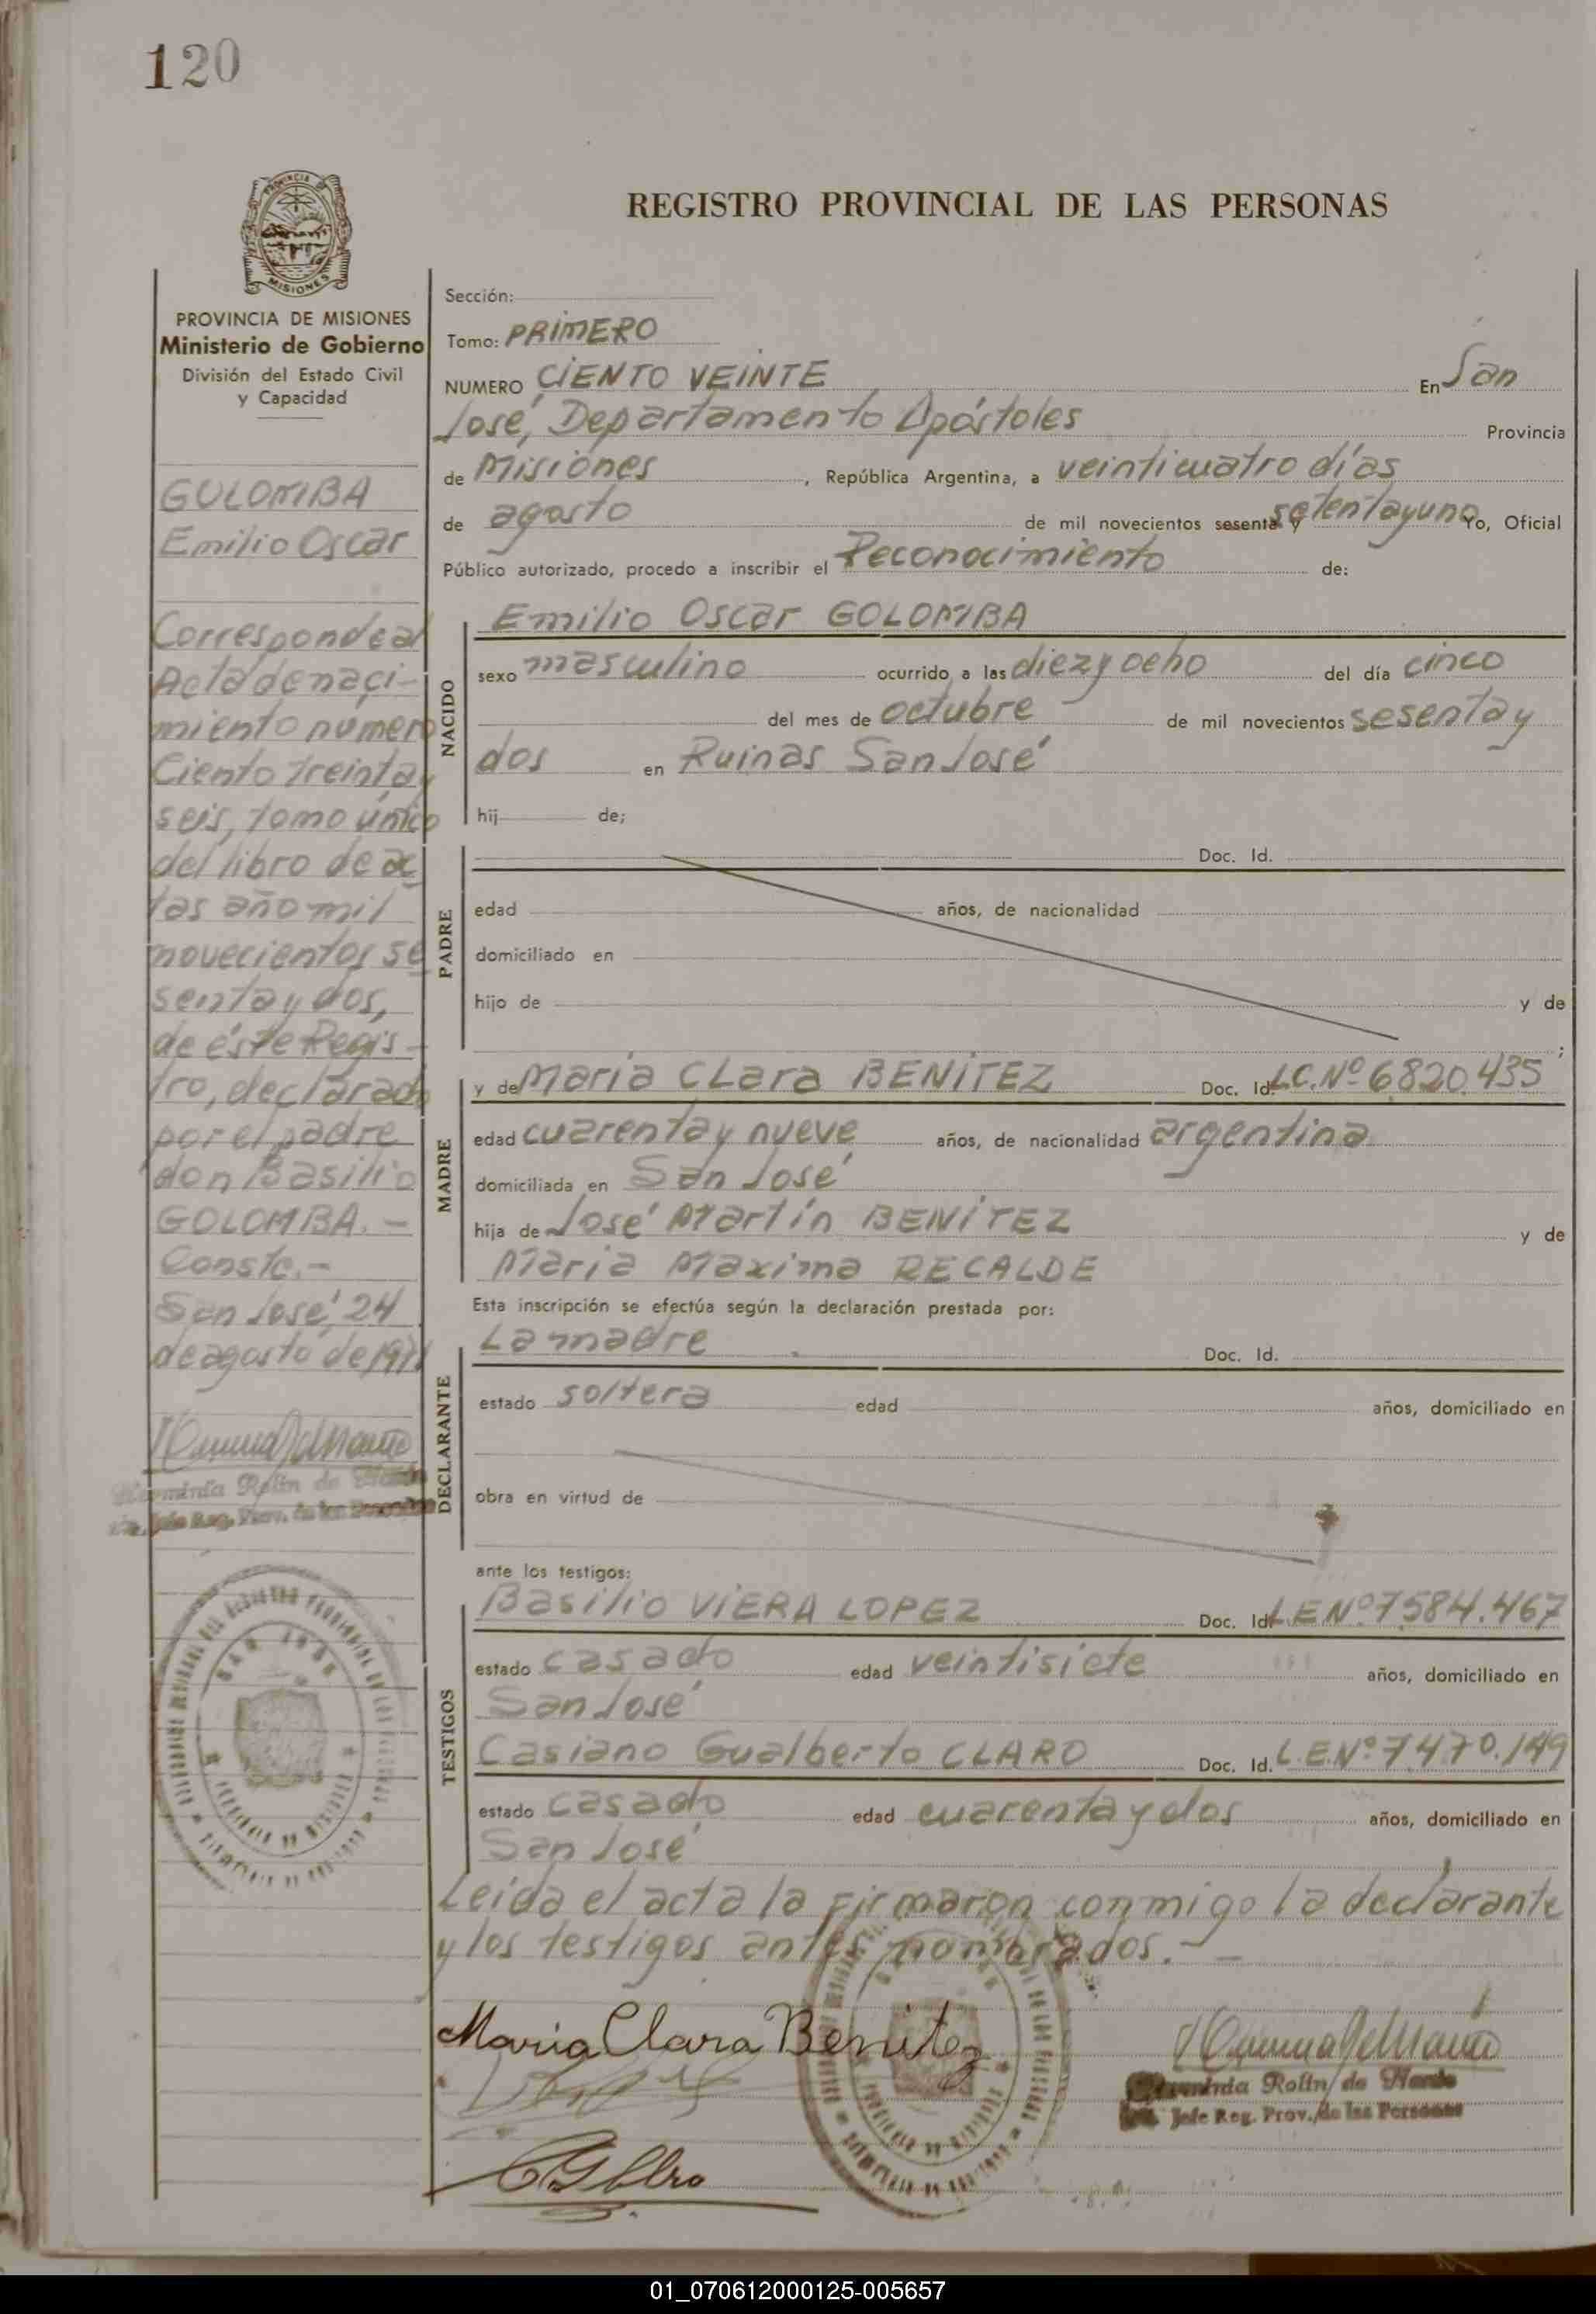 120
PROVINCIA DE MISIONES
Ministerio de Gobierno
División del Estado Civil
y Capacidad
GOLOMBA
Emilio Oscar
Corresponde al
Acta de naci-
miento numero
Ciento treinta y
seis, tomo único
del libro de ac
tas año mil
novecientos se
senta y dos,
de éste Regis-
tro, declarado
por el padre
don Basilio
GOLOMBA.-
Conste.-
San José, 24
de agosto de 1971
Herminia Rolin de
Jefe Reg. Prov. de las Personas
REGISTRO PROVINCIAL DE LAS PERSONAS
Sección:
Tomo: PRIMERO
NUMERO CIENTO VEINTE En San
José, Departamento Apóstoles Provincia
de Misiones, República Argentina, a veinticuatro días
de agosto de mil novecientos sesenta y setentayuno Yo, Oficial
Público autorizado, procedo a inscribir el Reconocimiento de:
NACIDO
Emilio Oscar GOLOMBA
sexo masculino ocurrido a las diez y ocho del día cinco
del mes de octubre de mil novecientos sesenta y
dos en Ruinas San José
hij de;
PADRE
Doc. Id.
edad años, de nacionalidad
domiciliado en
hijo de y de
;
MADRE
y de Maria CLara BENITEZ Doc. Id. L.C.Nº 6820.435
edad cuarenta y nueve años, de nacionalidad argentina
domiciliada en San José
hija de José Martín BENITEZ y de
Maria Maxima RECALDE
Esta inscripción se efectúa según la declaración prestada por:
DECLARANTE
La madre Doc. Id.
estado soltera edad años, domiciliado en
obra en virtud de
ante los testigos:
TESTIGOS
Basilio VIERA LOPEZ Doc. Id. L.E.Nº 7584.467
estado casado edad veintisiete años, domiciliado en
San José
Casiano Gualberto CLARO Doc. Id. L.E.Nº 7470.149
estado casado edad cuarenta y dos años, domiciliado en
San José
Leida el acta la firmaron conmigo la declarante
y los testigos antes nombrados.-
Maria Clara Benitez
Herminia Rolin de
Jefe Reg. Prov. de las Personas
01_070612000125-005657